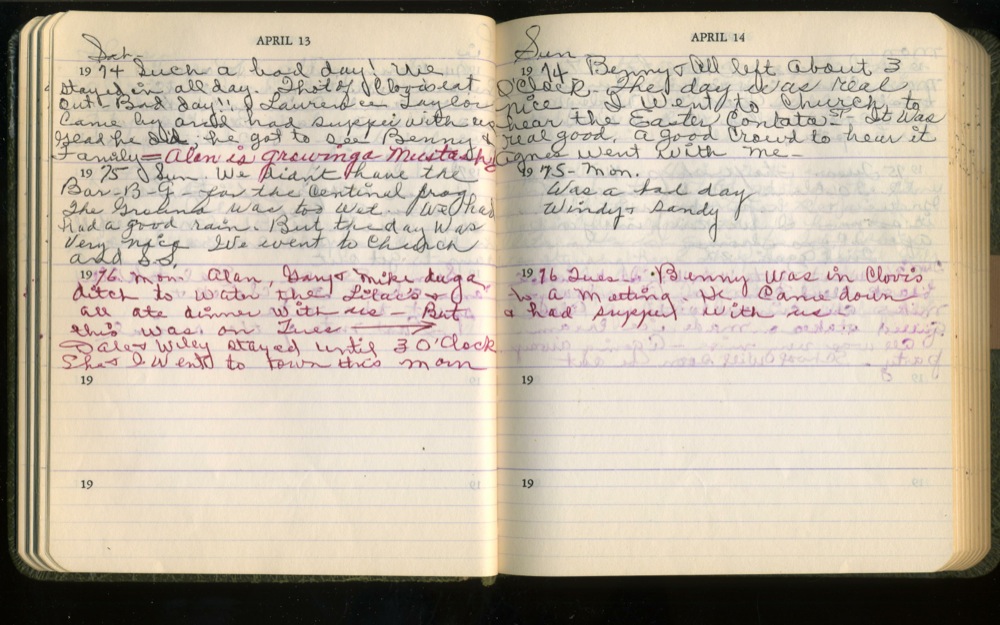 APRIL 13
Sat-
1974 Such a bad day! We
stayed in all day. That of Clovis eat
out! Bad day!! Lawrence Taylor
Came by and had supper with us
glad he did, he got to see Benny &
Family = Alan is growing a Mustash
1975 Sun We didn't have the
Bar-B-Q for the Centinal prog
The Grounds was too Wet. We had
had a good rain. But the day was
very nice We went to Church
and S.S.
1976 Mon. Alan, Gary & Mike dug a
ditch to water the Lilacs &
all ate dinner with us - But
this was on Tues →
Dale & Wiley stayed until 3 O'Clock
She & I went to town this morn
19
19
APRIL 14
Sun
1974 Benny & All left about 3
O'Clock - The day was real
nice I went to Church to
hear the Easter Contata - It was
real good. a good Crowd to hear it
Agnes went with me -
1975 - Mon.
Was a bad day
Windy & Sandy
1976 Tues - Benny was in Clovis
to a Meeting. He came down
& had supper with us
19
19